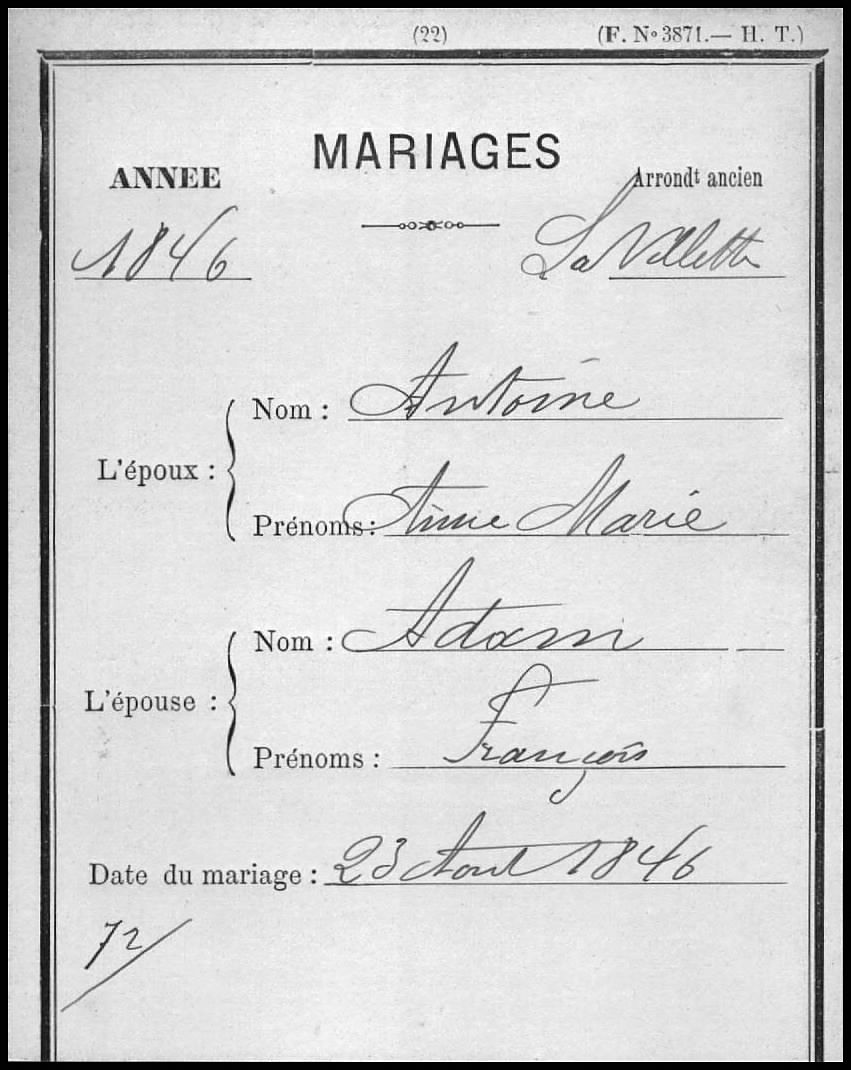 (22) (F. Nº 3871.— H. T.)
MARIAGES
ANNEE Arrondt ancien
1846 La Villette
L'époux :
Nom : Antoine
Prénoms : Anne Marie
L'épouse :
Nom : Adam
Prénoms : François
Date du mariage : 23 Aout 1846
72